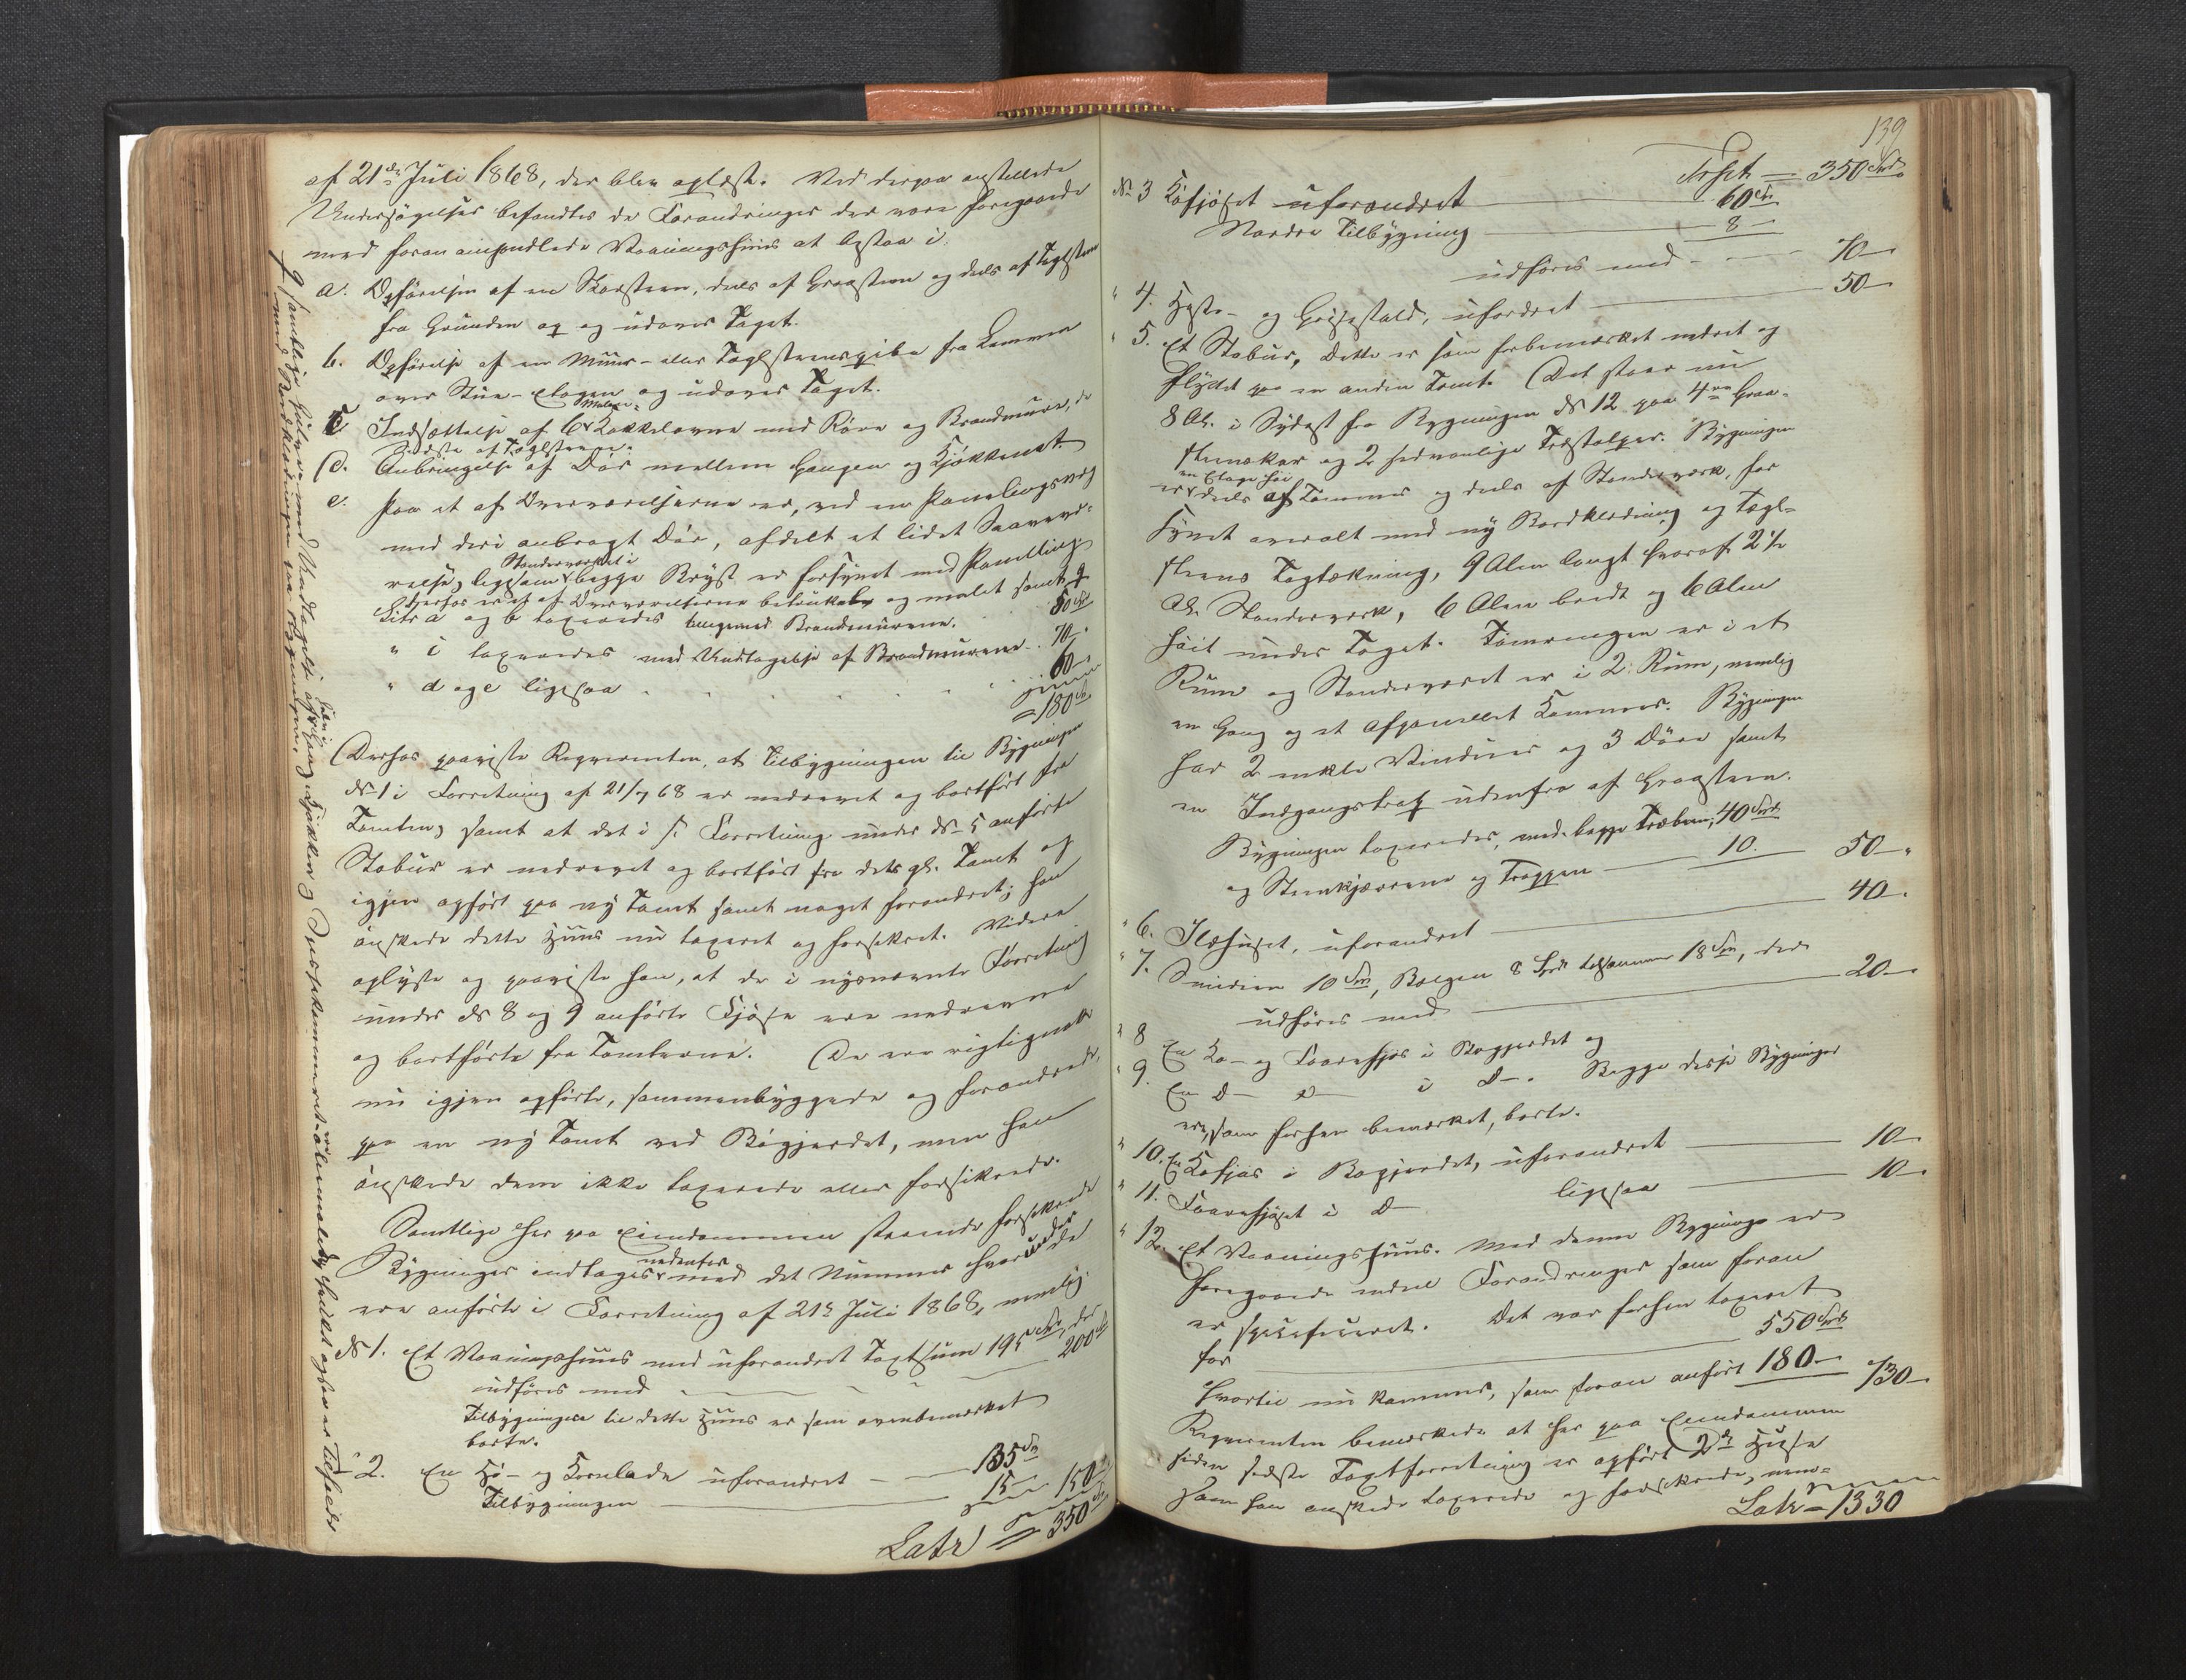 af 21de Juli 1868, der blev oplæst. Ved derpaa anstillede
Undersøgelser befandtes de Forandringer der vare foregaaede
med foran omhandlede Vaaningshuus at bestaa i:
a. Opførelsen af en Skorsteen, deels af Graasteen og deels af Teglsteen
fra Grunden op og udover Taget.
b. Opførelse af en Muur- eller Teglsteenspibe fra Lemmen
over Stue-etagen og udover Taget.
c Indsættelse af 6 Kakkelovne med Røre og Brandmure, de
sidste af Teglsteene.
d. Anbringelse af Dør mellem Gangen og Kjøkkenet.
e. Paa et af Overværelserne er, ved en Panelingsvæg
med deri anbragt Dør, afdelt et lidet Soveværelse,
ligesom Standerværket i begge Bryst er forsynet med Panelling.
Derhos er et af Overværelserne betrukket og malet samt
Litr a og b taxeredes tillige med Brandmurene. 50 Spd
" c taxeredes med Undtagelse af Brandmurene 70 -
" d og e ligesaa . . . . . 60 -
= 180 Sp
Derhos paaviste Requirenten, at Tilbygningen til Bygningen
No 1 i Forretning af 21/7 68 er nedrevet og bortført fra
Tomten, samt at det i s. Forretning under No 5 anførte
Stabur er nedrevet og bortført fra dets gl. Tomt og
igjen opført paa ny Tomt samt noget forandret; han
ønskede dette Huus nu taxeret og forsikret. Videre
oplyste og paaviste han, at de i nysnævnte Forretning
under No 8 og 9 anførte Fjøse ere nedrevne
og bortførte fra Tomterne. De ere rigtignok
nu igjen opførte, sammenbyggede og forandrede,
paa en ny Tomt ved Bøgjerdet, men han
ønskede dem ikke taxerede eller forsikrede.
Samtlige her paa Eiendommen staaende forsikrede
Bygninger indtages nedenfor med det Nummer hvorunder de
ere anførte i Forretning af 21de Juli 1868, nemlig:
No 1. Et Vaaningshuus med uforandret Taxtsum 195 Spd, der
udføres med 200 Spd
Tilbygningen til dette Huus er som ovenbemærket
borte.
" 2. En Hø- og Kornlade uforandret 135 Sp
Tilbygningen 15 150
Latr = 350 Sp
f samtlige Gulve, med Undtagelse af Gulv i Gang, Kjøkken og Spisekammeret ere oliemalede, hvilket ogsaa er Tilfælde
med Bordklædningen paa Bygningen.
139
Trspt = 350 Spd
No 3 Køfjøset uforandret 60 Spd
Nordre Tilbygning 8 -
udføres med 70 -
" 4. Heste- og Geisestald, ufordret 50 -
" 5. Et Stabur, dette er som forbemærket nedret og
flyttet paa en anden Tomt. Det staar nu
8 Al. i Sydost fra Bygningen No 12 paa 4re Graa-
steenskar og 2 sedvanlige Træstolper. Bygningen
er en Etage høi deels af Tømmer og deels af Standerværk, for
synet overalt med ny Bordklædning og Tegl-
steens Tagtækning, 9 Alen langt hvoraf 2 1/2
Al. Standerværk, 6 Alen bredt og 6 Alen
høit under Taget. Tømringen er i et
Rum og Standerværet er i 2. Rum, nemlig
en Gang og et afpanellet Kammer. Bygningen
har 2 enkle Vinduer og 3 Døre samt
en Indgangstrap udenfra af Graasteen.
Bygningen taxeredes, med begge Træbem, 40 Spd
og Steenkjærrene og Trappen 10. 50 -
" 6. Ildhuset, uforandret 40 -
" 7. Smidien 10 Spd, Bælgen 8 Spd tilsammen 18 Spd, der
udføres med 20 -
" 8 En Ko- og Faarefjøs i Bøgjerdet og
" 9. En D- D- i D-. Begge disse Bygninger
ere, som forhen bemærket, borte.
" 10. En Kofjøs i Bøgjerdet, uforandret 10 -
" 11. Faarefjøset i D- ligesaa 10 -
" 12. Et Vaaningshuus. Med denne Bygning er
foregaaede endeel Forandringer som foran
er specificeret. Det var forhen taxeret
for 550 Spd
hvortil nu kommer, som foran anført 180 - 730 -
Requirenten bemærkede at her paa Eiendommen
siden sidste Taxtforretning er opført 2de Huse
som han ønskede taxerede og forsikrede, nem-
Latr = 1330